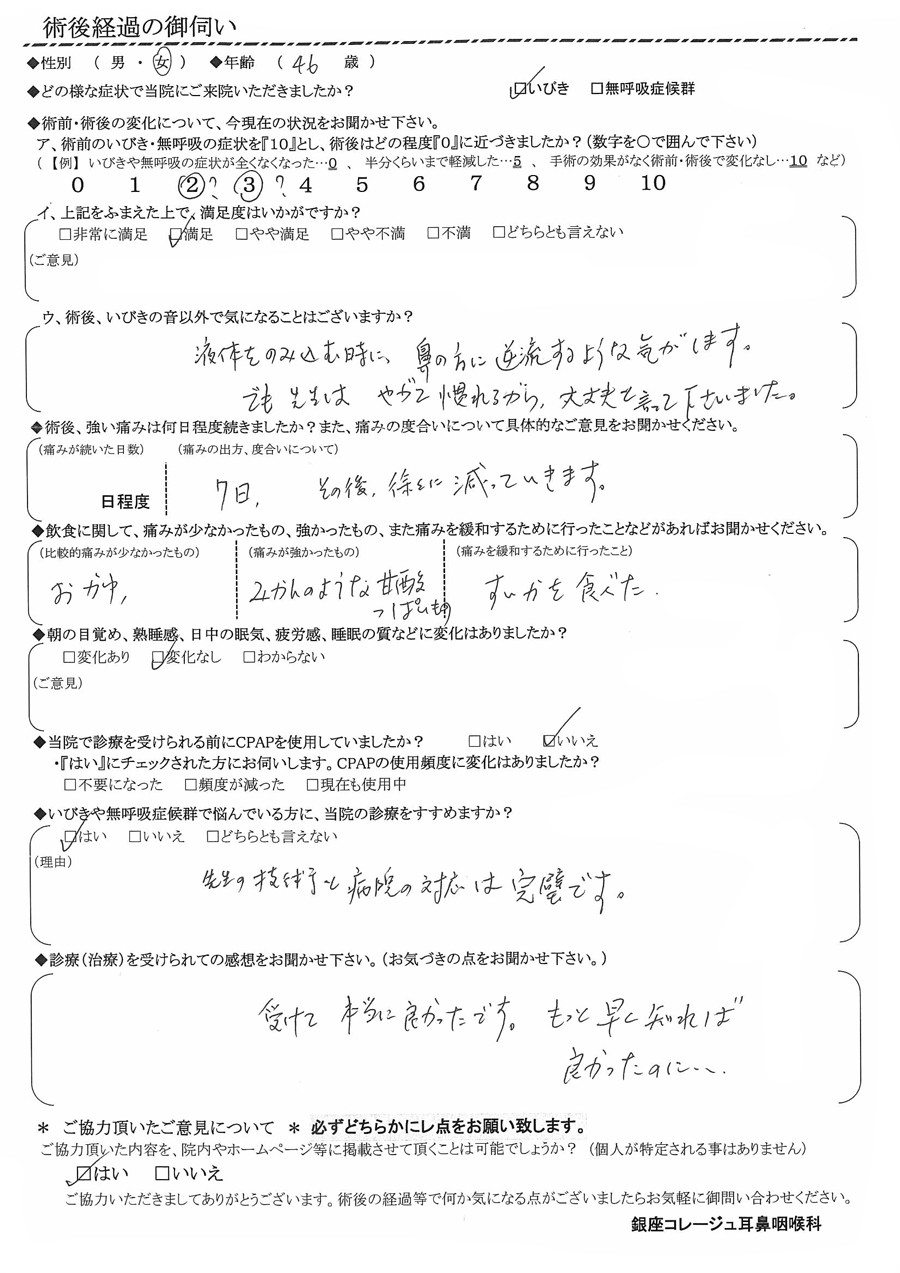 術後経過の御伺い
◆性別 （ 男 ・ 女 ） ◆年齢 （ 46 歳 ）
◆どの様な症状で当院にご来院いただきましたか？ □いびき □無呼吸症候群
◆術前・術後の変化について、今現在の状況をお聞かせ下さい。
ア、術前のいびき・無呼吸の症状を『10』とし、術後はどの程度『0』に近づきましたか？(数字を○で囲んで下さい)
（【例】いびきや無呼吸の症状が全くなくなった…0 、 半分くらいまで軽減した…5 、 手術の効果がなく術前・術後で変化なし…10 など）
0 1 2? 3? 4 5 6 7 8 9 10
イ、上記をふまえた上で、満足度はいかがですか？
□非常に満足 □満足 □やや満足 □やや不満 □不満 □どちらとも言えない
(ご意見)
ウ、術後、いびきの音以外で気になることはございますか？
液体をのみ込む時に、鼻の方に逆流するような気がします。
でも先生は やがて慣れるから、大丈夫と言って下さいました。
◆術後、強い痛みは何日程度続きましたか？また、痛みの度合いについて具体的なご意見をお聞かせください。
(痛みが続いた日数) (痛みの出方、度合いについて)
日程度 7日, その後, 徐々に減っていきます。
◆飲食に関して、痛みが少なかったもの、強かったもの、また痛みを緩和するために行ったことなどがあればお聞かせください。
(比較的痛みが少なかったもの) (痛みが強かったもの) (痛みを緩和するために行ったこと)
おかゆ, みかんのような甘酸っぱいもの すいかを食べた.
◆朝の目覚め、熟睡感、日中の眠気、疲労感、睡眠の質などに変化はありましたか？
□変化あり □変化なし □わからない
(ご意見)
◆当院で診療を受けられる前にCPAPを使用していましたか？ □はい □いいえ
・『はい』にチェックされた方にお伺いします。CPAPの使用頻度に変化はありましたか？
□不要になった □頻度が減った □現在も使用中
◆いびきや無呼吸症候群で悩んでいる方に、当院の診療をすすめますか？
□はい □いいえ □どちらとも言えない
(理由)
先生の技術と病院の対応は完璧です。
◆診療(治療)を受けられての感想をお聞かせ下さい。(お気づきの点をお聞かせ下さい。)
受けて 本当に良かったです。もっと早く知れば
良かったのに…
＊ ご協力頂いたご意見について ＊ 必ずどちらかにレ点をお願い致します。
ご協力頂いた内容を、院内やホームページ等に掲載させて頂くことは可能でしょうか？（個人が特定される事はありません）
□はい □いいえ
ご協力いただきましてありがとうございます。術後の経過等で何か気になる点がございましたらお気軽に御問い合わせください。
銀座コレージュ耳鼻咽喉科